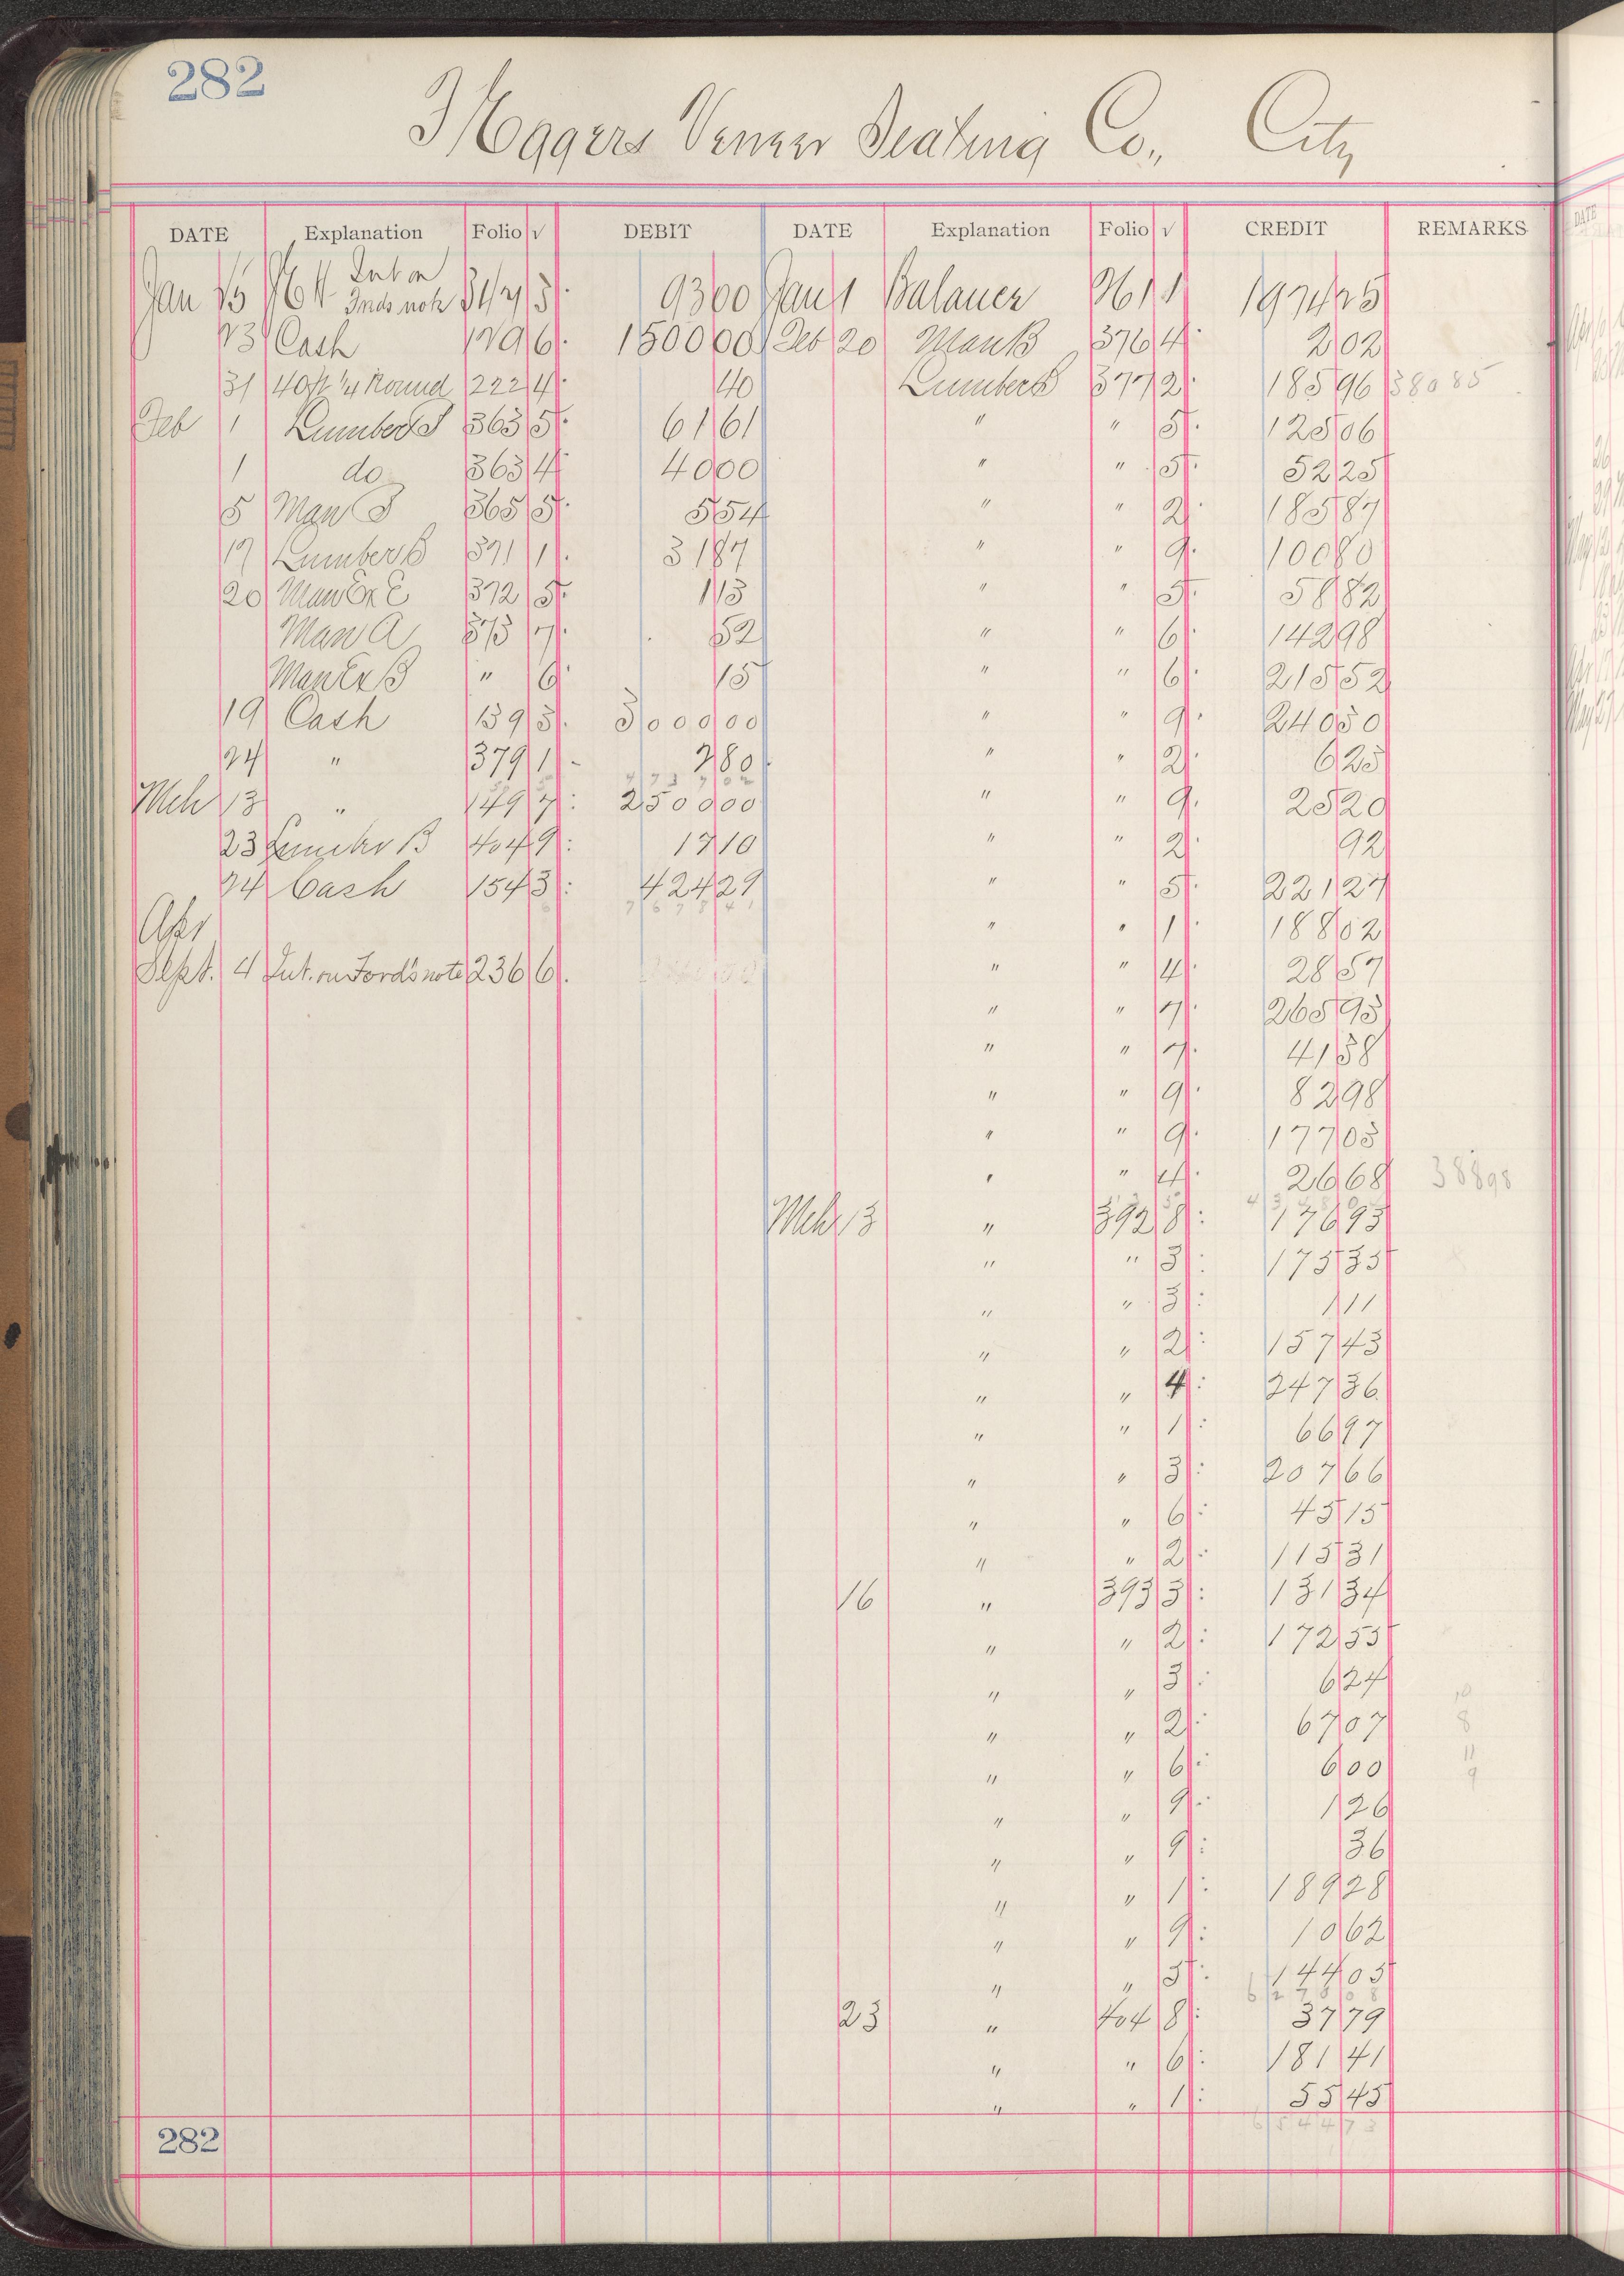 282
Eggers Veneer Seating Co., City
DATE Explanation Folio √ DEBIT DATE Explanation Folio √ CREDIT REMARKS
Jan Int on
9300 Jan 1 Balance 361 1 197425
23 Cash 179 6 150000 Feb 20 Man B 376 4 202
31 40 ft 1/4 Round 222 4 40 Lumber B 377 2 18596 38085
Feb 1 Lumber S 363 5 6161 " " 5 12506
1 do 363 4 4000 " " 5 5225
5 Man S 365 5 554 " " 2 18587
17 Lumber B 371 1 3187 " " 9 10080
20 Man Ex C 372 5 113 " " 5 5882
Man A 373 7 52 " " 6 14298
Man Ex B " 6 15 " " 6 21552
19 Cash 139 3 300000 " " 9 24050
24 " 379 1 280 " " 2 625
Mch 13 " 149 7 250000 " " 9 2520
23 Lumber B 404 9 1710 " " 2 92
24 Cash 154 3 42429 " " 5 22127
767841
Apr " " 1 18802
Sept. 4 Int. on Ford's note 236 6 " " 4 2857
" " 7 26593
" " 7 4158
" " 9 8298
" " 9 17703
" " 4 2668 38898
Mch 13 " 392 8 17693
" " 3 17535
" " 3 111
" " 2 15743
" " 4 24736
" " 1 6697
" " 3 20766
" " 6 4515
" " 2 11531
16 " 393 3 13134
" " 2 17255
" " 3 624
" " 2 6707
" " 6 600
" " 9 126
" " 9 36
" " 1 18928
" " 9 1062
" " 5 14405
23 " 404 8 3779
" " 6 18141
" " 1 5545
654473
282